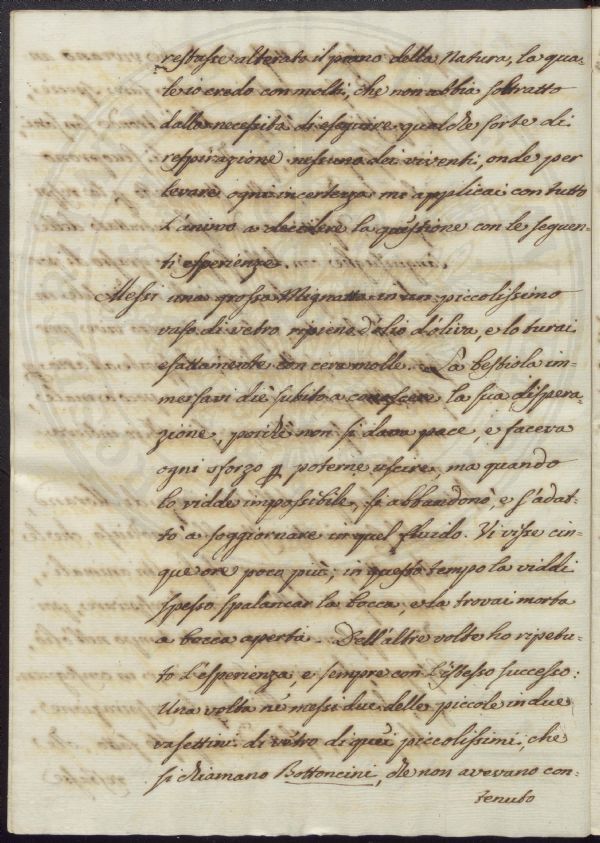 restasse alterato il piano della Natura, la qua-
le io credo con molti, che non abbia sottratto
dalla necessità di eseguire qualche sorte di
respirazione nessuno dei viventi, onde per
levare ogni incertezza mi applicai con tutto
l'animo a decidere la quistione con le seguen-
ti esperienze.
Messi una grossa Mignatta in un piccolissimo
vaso di vetro ripieno d'olio d'oliva, e lo turai
esattamente con cera molle. La bestiola im-
mersavi diè subito a conoscere la sua dispera-
zione, poichè non si dava pace, e faceva
ogni sforzo p poterne uscire, ma quando
lo vidde impossibile, si abbandonò, e s'adat-
tò a soggiornare in quel fluido. Vi visse cin-
que ore poco più; in questo tempo la viddi
spesso spalancar la bocca, e la trovai morta
a bocca aperta. Dell'altre volte ho ripetu-
to l'esperienza, e sempre con l'istesso successo.
Una volta nè messi due delle piccole in due
vasettini di vetro di quei piccolissimi, che
si chiamano Bottoncini, che non avevano con-
tenuto